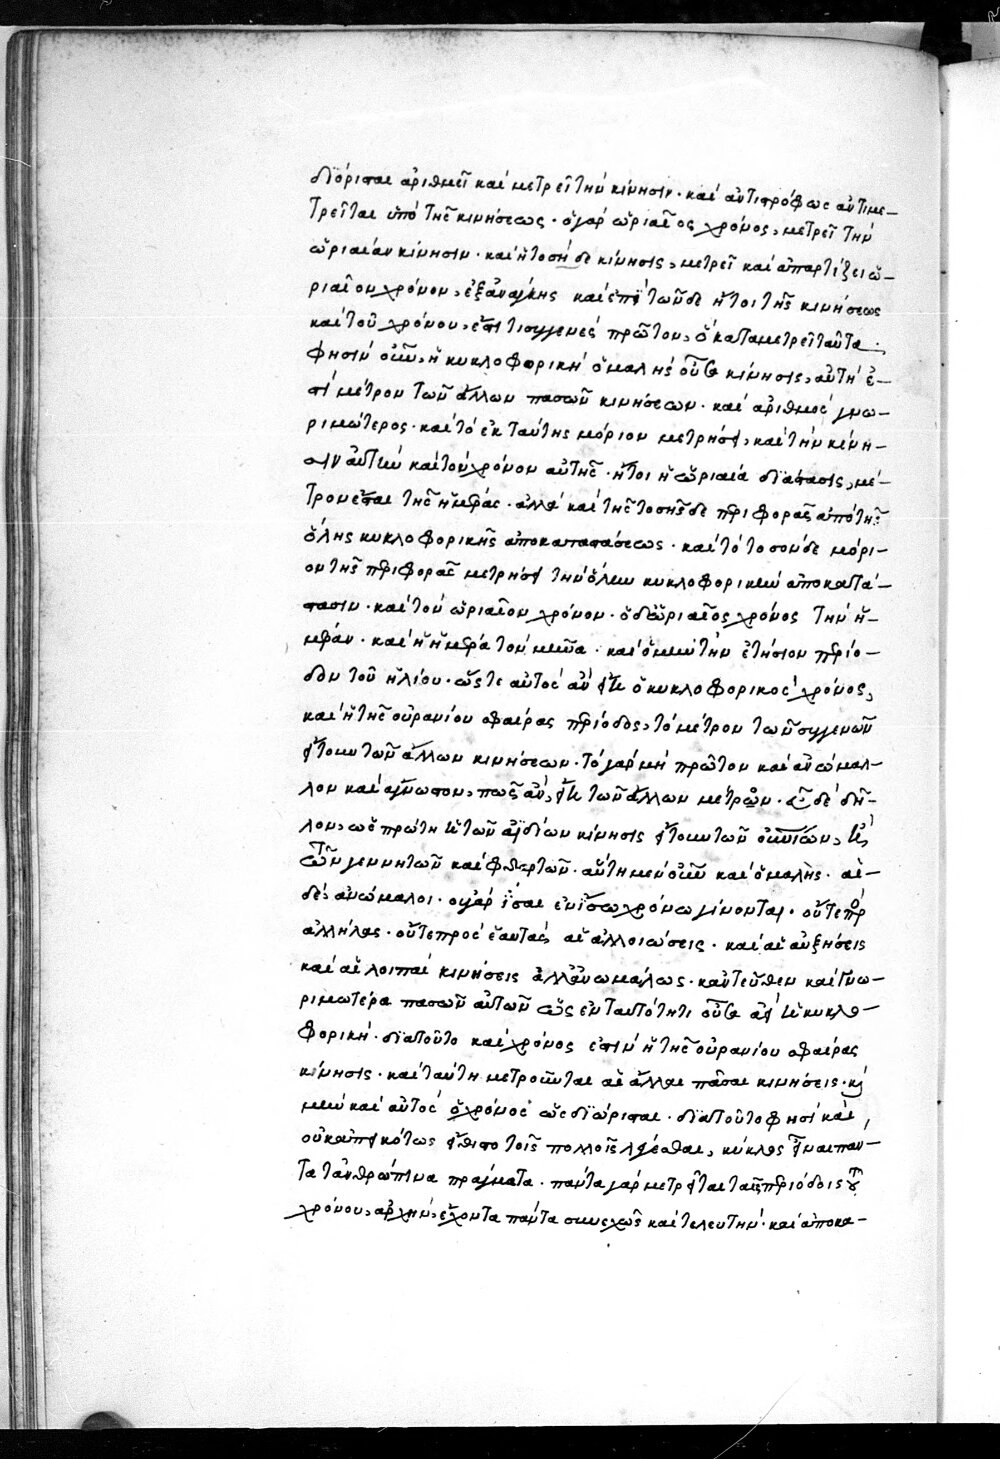 διόρισται ἀριθμεῖ καὶ μετρεῖ τὴν κίνησιν· καὶ ἀντιστρόφως ἀντιμε-
τρεῖται ὑπὸ τῆς κινήσεως· ὁ γὰρ ὡριαῖος χρόνος, μετρεῖ τὴν
ὡριαίαν κίνησιν· καὶ ἡ τοσή δε κίνησις, μετρεῖ καὶ ἀπαρτίζει ὡ-
ριαῖον χρόνον, ἐξανάγκης καὶ ἐπὶ τῶνδε ἤτοι τῆς κινήσεως
καὶ τοῦ χρόνου, ἔστι τι συγγενὲς πρῶτον, ὃ καταμετρεῖ ταῦτα·
φησὶν οὖν, ἡ κυκλοφορικὴ ὁμαλὴς οὖσα κίνησις, αὐτὴ ἐ-
στὶ μέτρον τῶν ἄλλων πασῶν κινήσεων· καὶ ἀριθμὸς γνω-
ριμώτερος· καὶ τὸ ἐκ ταύτης μόριον μετρήσει, καὶ τὴν κίνη-
σιν αὐτὴν καὶ τὸν χρόνον αὐτῆς· ἤτοι ἡ ὡριαία διάστασις, μέ-
τρον ἔσται τῆς ἡμέρας· ἀλλὰ καὶ τῆς τοσῆσδε περιφορᾶς ἀπὸ τῆς
ὅλης κυκλοφορικῆς ἀποκαταστάσεως· καὶ τὸ τοσόνδε μόρι-
ον τῆς περιφορᾶς μετρήσει τὴν ὅλην κυκλοφορικὴν ἀποκατά-
στασιν· καὶ τὸν ὡριαῖον χρόνον· ὁ δὲ ὡριαῖος χρόνος τὴν ἡ-
μέραν· καὶ ἡ ἡμέρα τὸν μῆνα· καὶ ὁ μὴν τὴν ἐτήσιον περίο-
δον τοῦ ἡλίου· ὥστε αὐτὸς ἂν εἴη ὁ κυκλοφορικὸς χρόνος,
καὶ ἡ τῆς οὐρανίου σφαίρας περίοδος, τὸ μέτρον τῶν συγγενῶν
ἤτουν τῶν ἄλλων κινήσεων· τὸ γὰρ μὴ πρῶτον καὶ ἀνώμαλ-
λον καὶ ἄγνωστον, πῶς ἂν εἴη τῶν ἄλλων μέτρον· δὲ δῆ-
λον, ὡς πρώτη τῶν ἀϊδίων κίνησις ἤτουν τῶν
τῶν γεννητῶν καὶ φθαρτῶν· αὕτη μὲν οὖν καὶ ὁμαλὴς· αἱ
δὲ, ἀνώμαλοι· οὐ γὰρ ἴσαι ἐν ἴσω χρόνω γίνονται· οὔτε πρὸς
ἀλλήλας· οὔτε πρὸς ἑαυτὰς, αἱ ἀλλοιώσεις· καὶ αἱ αὐξήσεις
καὶ αἱ λοιπαὶ κινήσεις ἀλλ' ἀνωμάλως· κἀντεῦθεν καὶ γνω-
ριμωτέρα πασῶν αὐτῶν ὡς ἐν ταὐτότητι οὖσα ἀεὶ ἡ κυκλο-
φορική· διατοῦτο καὶ χρόνος ἐστὶν ἡ τῆς οὐρανίου σφαίρας
κίνησις· καὶ ταύτη μετροῦνται αἱ ἄλλαι πᾶσαι κινήσεις· καὶ
μὴν καὶ αὐτὸς ὁ χρόνος ὡς διώρισται· διατοῦτο φησὶ καὶ
οὐκ ἀπεικότως εἴθισται τοῖς πολλοῖς λέγεσθαι, κύκλος εἶναι πάν-
τα τἀνθρώπινα πράγματα· πάντα γὰρ μετρεῖται ταῖς περιόδοις τοῦ
χρόνου, ἀρχὴν, ἔχοντα πάντα συνεχῶς καὶ τελευτὴν· καὶ ἀποκα-